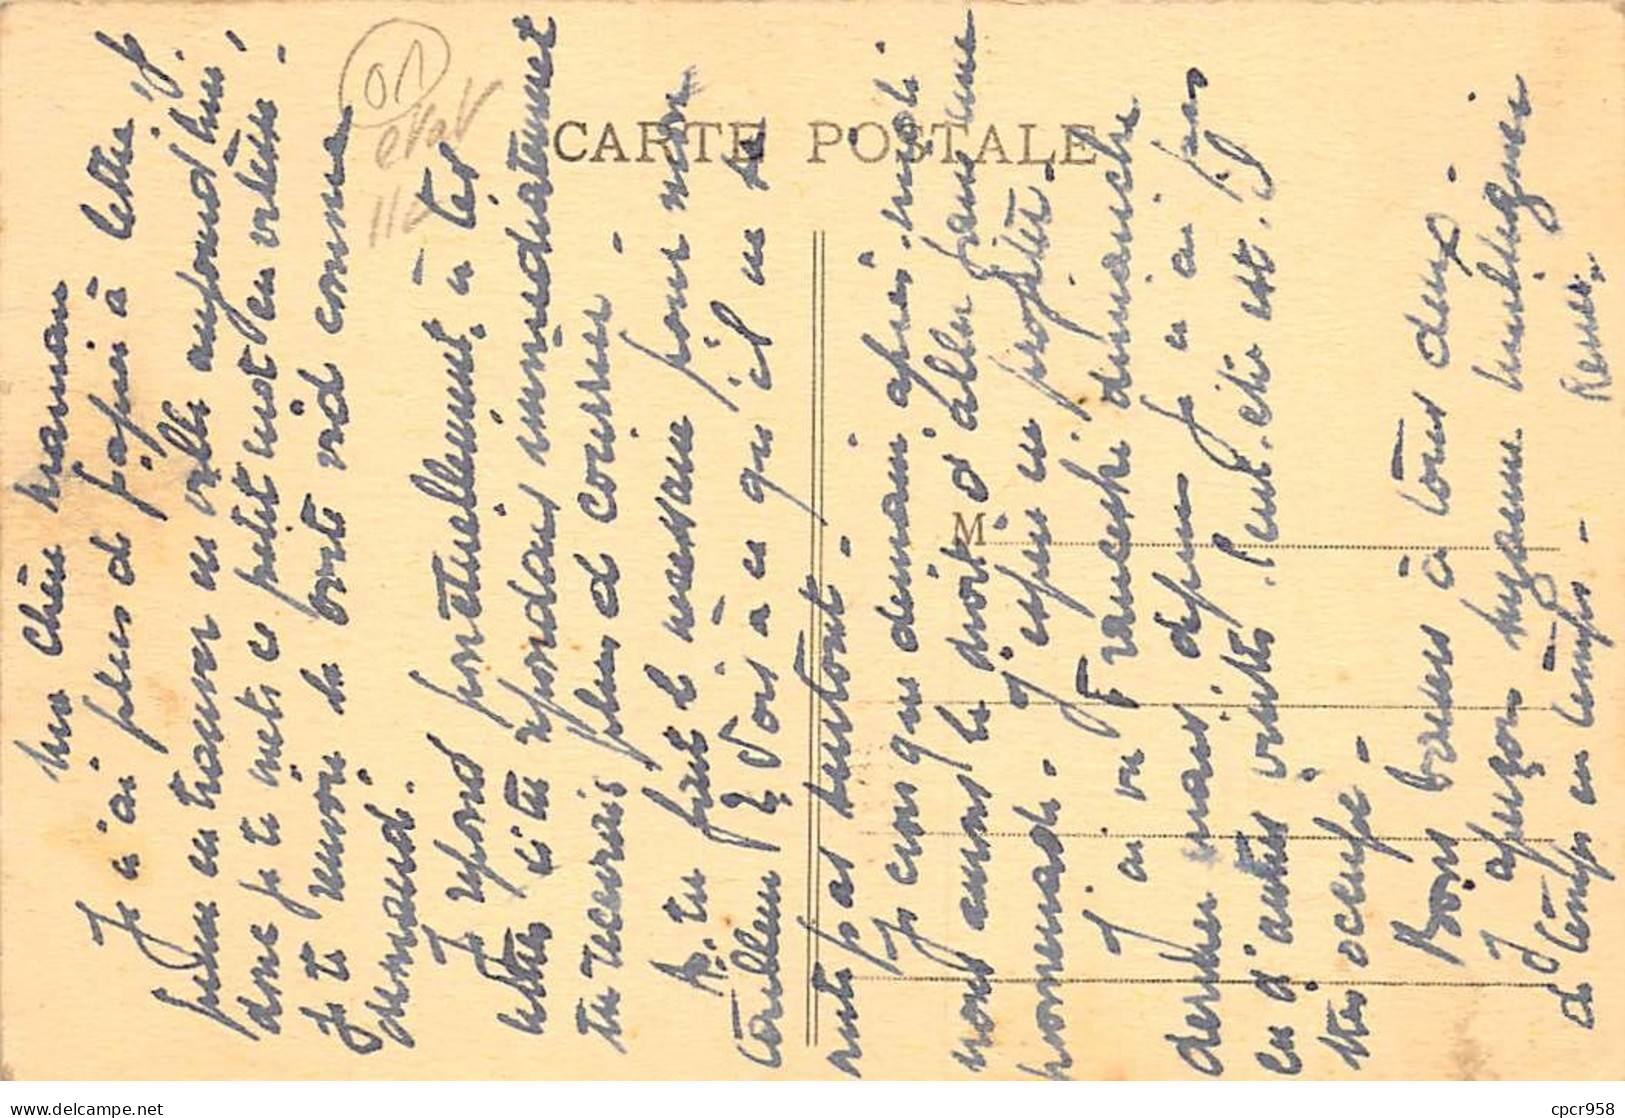 CARTE POSTALE
M
01
Ma chère maman
Je n'ai plus de papier à lettre if
puin en trouver en ville aujourd'hui,
donc je te mets ce petit mot en vitesse.
Je te renvoie la boîte vide comme
demandé.
Je répond ponctuellement à tes
lettres si tu répondais immédiatement
tu recevrais plus de courrier.
As-tu fait le nécessaire pour mon
Vois à ce qu'il ne se
pas surtout.
Je crois que demain après-midi
nous aurons le droit d'aller faire une
promenade. J'espère en profiter.
J'ai vu Franceschi dimanche
dernier mais depuis je n'ai pas
eu d'autres visites. Peut-être est-il
très occupé.
Bons baisers à tous deux.
J'aperçois Suzanne
de temps en temps.
cpcr958